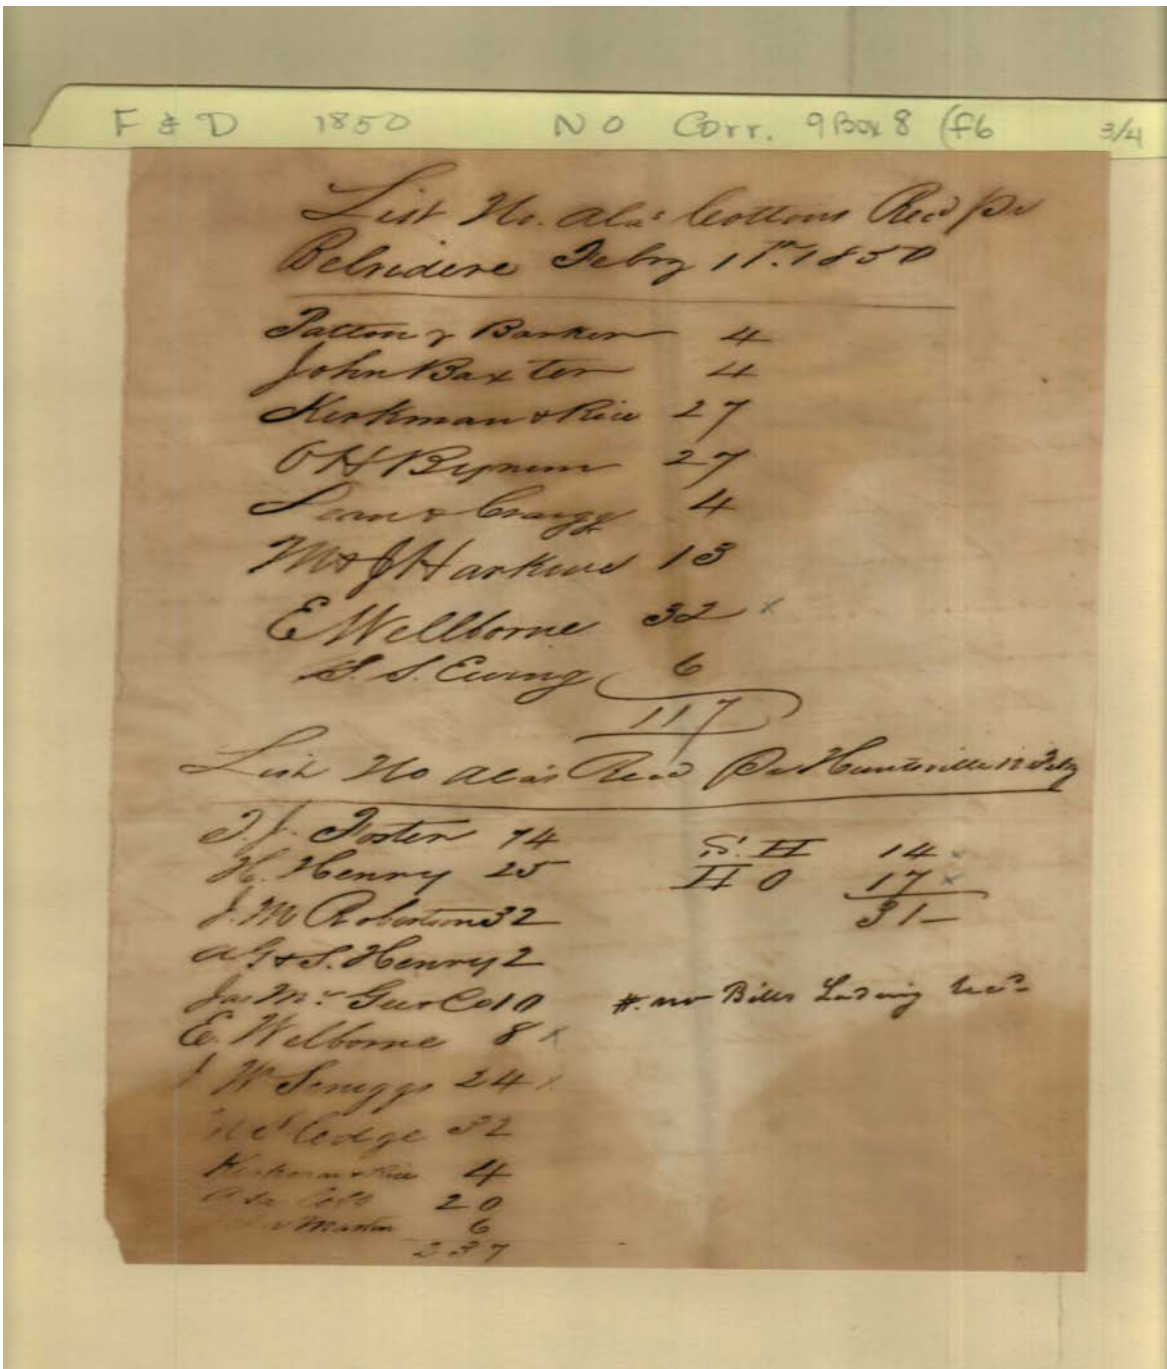 F & D 1850 NO Corr. 9 Box 8 (f6 3/4
List No. Ala's Cottons Recd Pr
Belvidere Febry 11th 1850
Patton & Barker 4
John Baxter 4
Kirkman & Rice 27
O H Bynum 27
& Craigg 4
M & J Harkins 13
E Wellborne 32 x
S. S. Ewing 6
117
List No Ala's Recd Pr Huntsville 12 Feby
T. J. Foster 74
H. Henry 25
J. M Robertson 32
A G & S. Henry 2
Jas Mc Gee & Co 10
E. Welborne 8 x
J W Scruggs 24 x
32
Kirkman & Rice 4
20
John Martin 6
237
S. H 14 x
H O 17 x
31 –
#. no Bills Lading Recd